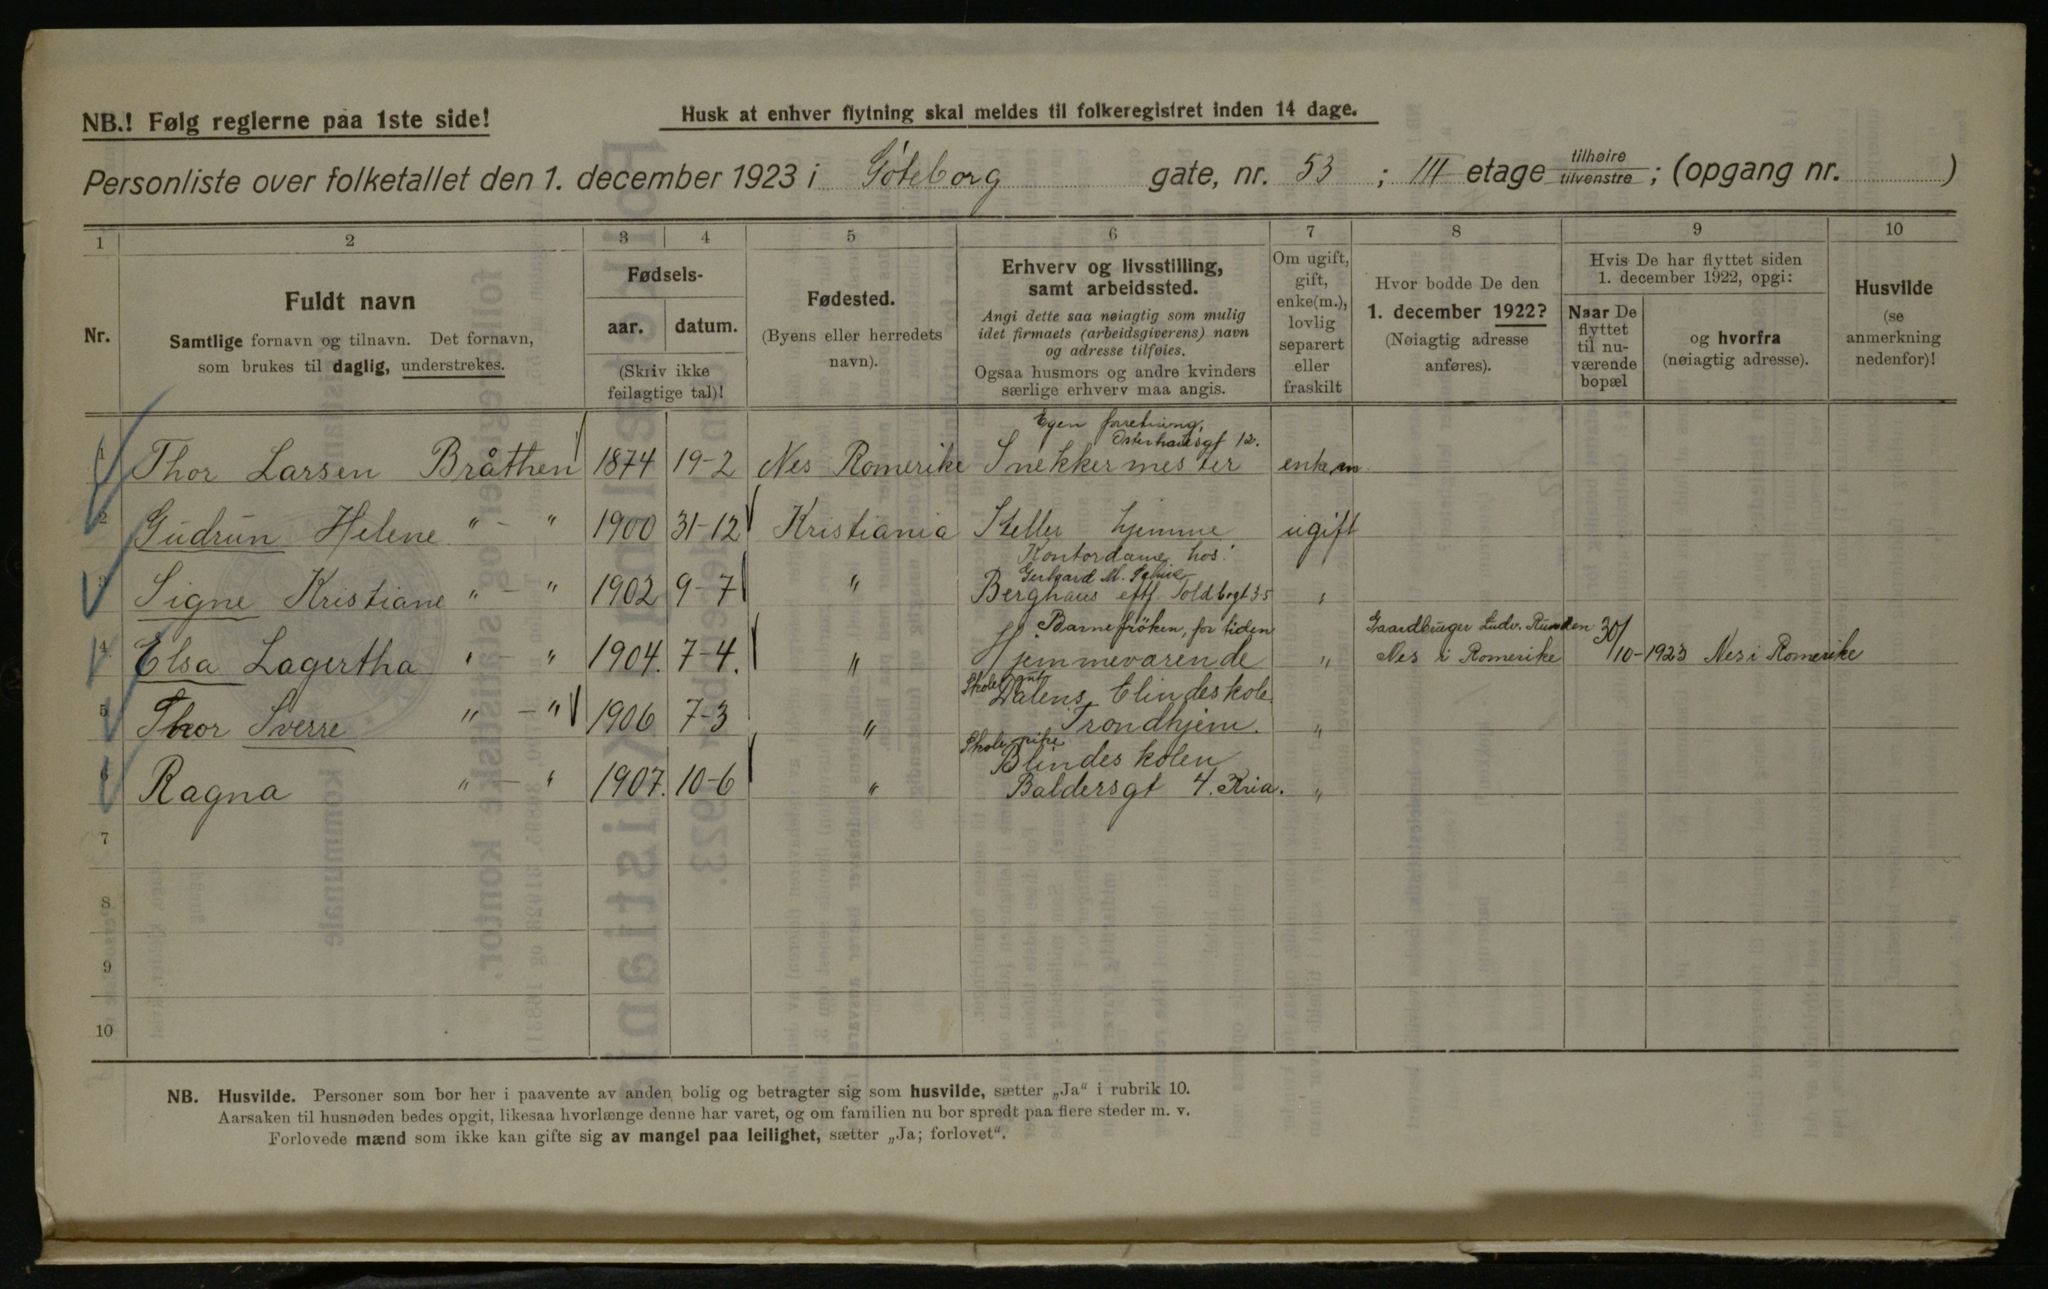 NB.! Følg reglerne paa 1ste side!
Husk at enhver flytning skal meldes til folkeregistret inden 14 dage.
Personliste over folketallet den 1. december 1923 i Göteborg gate, nr. 53; III etage tilhøire tilvenstre; (opgang nr. )
1 2 3 4 5 6 7 8 9 10
Nr.
Fuldt navn
Samtlige fornavn og tilnavn. Det fornavn,
som brukes til daglig, understrekes.
Fødsels-
aar. datum.
(Skriv ikke
feilagtige tal)!
Fødested.
(Byens eller herredets
navn).
Erhverv og livsstilling,
samt arbeidssted.
Angi dette saa nøiagtig som mulig
idet firmaets (arbeidsgiverens) navn
og adresse tilføies.
Ogsaa husmors og andre kvinders
særlige erhverv maa angis.
Om ugift,
gift,
enke(m.),
lovlig
separert
eller
fraskilt
Hvor bodde De den
1. december 1922?
(Nøiagtig adresse
anføres).
Hvis De har flyttet siden
1. december 1922, opgi:
Naar De
flyttet
til nu-
værende
bopæl
og hvorfra
(nøiagtig adresse).
Husvilde
(se
anmerkning
nedenfor)!
Egen forretning,
Osterhausgt 12.
1 Thor Larsen Bråthen 1874 19-2 Nes Romerike Snekkermester enkem
2 Gudrun Helene " - " 1900 31-12 Kristiania Steller hjemme ugift
Kontordame hos:
Gerhard M.
3 Signe Kristiane " - " 1902 9-7 " Berghaus eftf. Toldbogt 35 "
Barnefröken, for tiden
Gaardbruger Ludv.
4 Elsa Lagertha " - " 1904. 7-4. " Hjemmeværende " Nes i Romerike 30/10-1923 Nes i Romerike
Dalens Blindeskole
5 Thor Sverre " - " 1906 7-3 " Trondhjem. "
Blindeskolen
6 Ragna " - " 1907. 10-6 " Baldersgt 4. Kria. "
7
8
9
10
NB. Husvilde. Personer som bor her i paavente av anden bolig og betragter sig som husvilde, sætter „Ja“ i rubrik 10.
Aarsaken til husnøden bedes opgit, likesaa hvorlænge denne har varet, og om familien nu bor spredt paa flere steder m. v.
Forlovede mænd som ikke kan gifte sig av mangel paa leilighet, sætter „Ja; forlovet“.